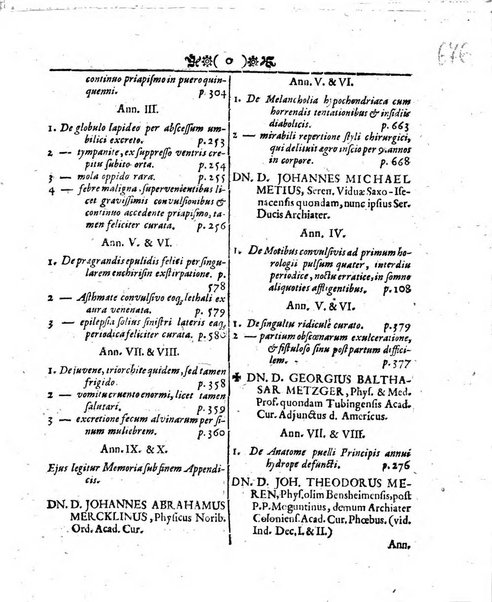 ❧❀( o )❀❧
676
continuo priapismo in puero quin-
quenni. p. 304
Ann. III.
1. De globulo lapideo per abscessum um-
bilici excreto. p. 253
2 — tympanite, ex suppresso ventris cre-
pitu subito orta. p. 254
3 — mola oppido rara. p. 255
4 — febre maligna supervenientibus li-
cet gravissimis convulsionibus &
continuo accedente priapismo, ta-
men feliciter curata. p. 256
Ann. V. & VI.
1. De prægrandis epulidis felici per singu-
larem enchirisin exstirpatione. p.
578
2 — Asthmate convulsivo eoq; lethali ex
aura venenata. p. 579
3 — epilepsia solius sinistri lateris eaq;
periodica feliciter curata. p. 58
Ann. VII. & VIII.
1. De juvene, triorchite quidem, sed tamen
frigido. p. 358
2 — vomitu cruento enormi, licet tamen
salutari. p. 359
3 — excretione fecum alvinarum per si-
num muliebrem. p. 360
Ann. IX. & X.
Ejus legitur Memoria sub finem Appendi-
cis.
DN. D. JOHANNES ABRAHAMUS
MERCKLINUS, Physicus Norib.
Ord. Acad. Cur.
Ann. V. & VI.
1. De Melancholia hypochondriaca cum
horrendis tentationibus & insidiis
diabolicis. p. 663
2 — mirabili repertione styli chirurgici,
qui delituit ægro inscio per 9. annos
in corpore. p. 668
DN. D. JOHANNES MICHAEL
METIUS, Seren. Viduæ Saxo-Ise-
nacensis quondam, nunc ipsius Ser.
Ducis Archiater.
Ann. IV.
1. De Motibus convulsivis ad primum ho-
rologii pulsum quater, interdiu
periodice, noctu erratice, in somno
aliquoties affligentibus. p. 108
Ann. V. & VI.
1. De singultu ridicule curato. p. 379
2 — partium obscœnarum exulceratione,
& fistuloso sinu post partum diffici-
lem. p. 377
✠ DN. D. GEORGIUS BALTHA-
SAR METZGER, Phys. & Med.
Prof. quondam Tubingensis Acad.
Cur. Adjunctus d. Americus.
Ann. VII. & VIII.
1. De Anatome puelli Principis annui
hydrope defuncti. p. 276
DN. D. JOH. THEODORUS ME-
REN, Phys. olim Bensheimensis, post
P.P. Moguntinus, demum Archiater
Coloniens. Acad. Cur. Phœbus. (vid.
Ind. Dec. I. & II.)
Ann.